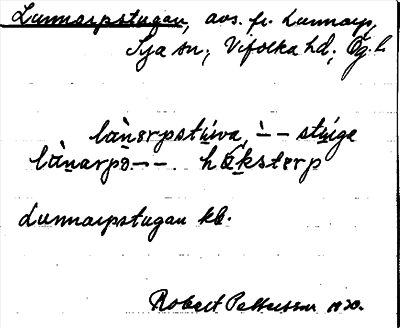 Lunnarpstugan, avs. fr. Lunnarp,
Sya sn; Vifolka hd; Ög. l.
lànarpstu̲va, ̀ – – stu̲ige
lànarps – – hökstɛrp
Lunnarpstugan kb.
Robert Pettersson 1920.